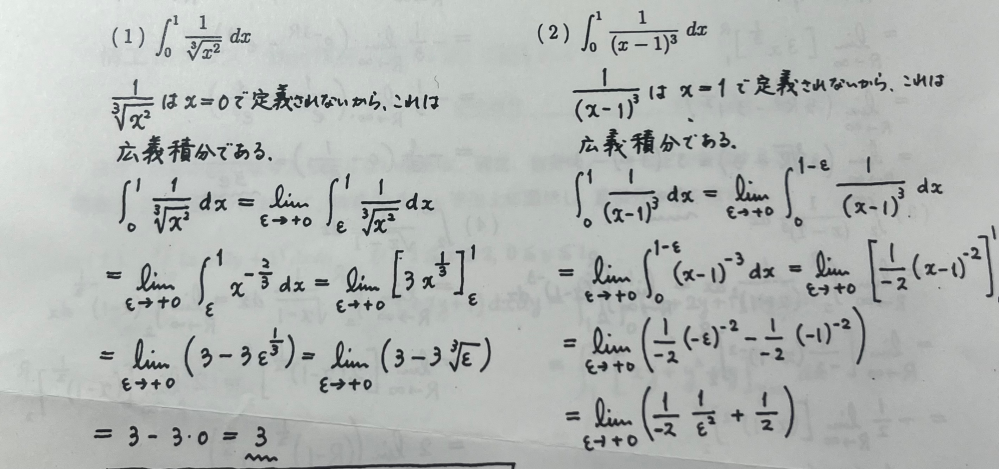 (1) ∫₀¹ 1/∛(x²) dx
1/∛(x²) は x=0 で定義されないから、これは
広義積分である.
∫₀¹ 1/∛(x²) dx = lim_{ε→+0} ∫_ε¹ 1/∛(x²) dx
= lim_{ε→+0} ∫_ε¹ x^{-2/3} dx = lim_{ε→+0} [3x^{1/3}]_ε¹
= lim_{ε→+0} (3 - 3ε^{1/3}) = lim_{ε→+0} (3 - 3∛ε)
= 3 - 3·0 = 3
(2) ∫₀¹ 1/(x-1)³ dx
1/(x-1)³ は x=1 で定義されないから、これは
広義積分である.
∫₀¹ 1/(x-1)³ dx = lim_{ε→+0} ∫₀^{1-ε} 1/(x-1)³ dx
= lim_{ε→+0} ∫₀^{1-ε} (x-1)^{-3} dx = lim_{ε→+0} [1/-2 (x-1)^{-2}]
= lim_{ε→+0} (1/-2 (-ε)^{-2} - 1/-2 (-1)^{-2})
= lim_{ε→+0} (1/-2 1/ε² + 1/2)